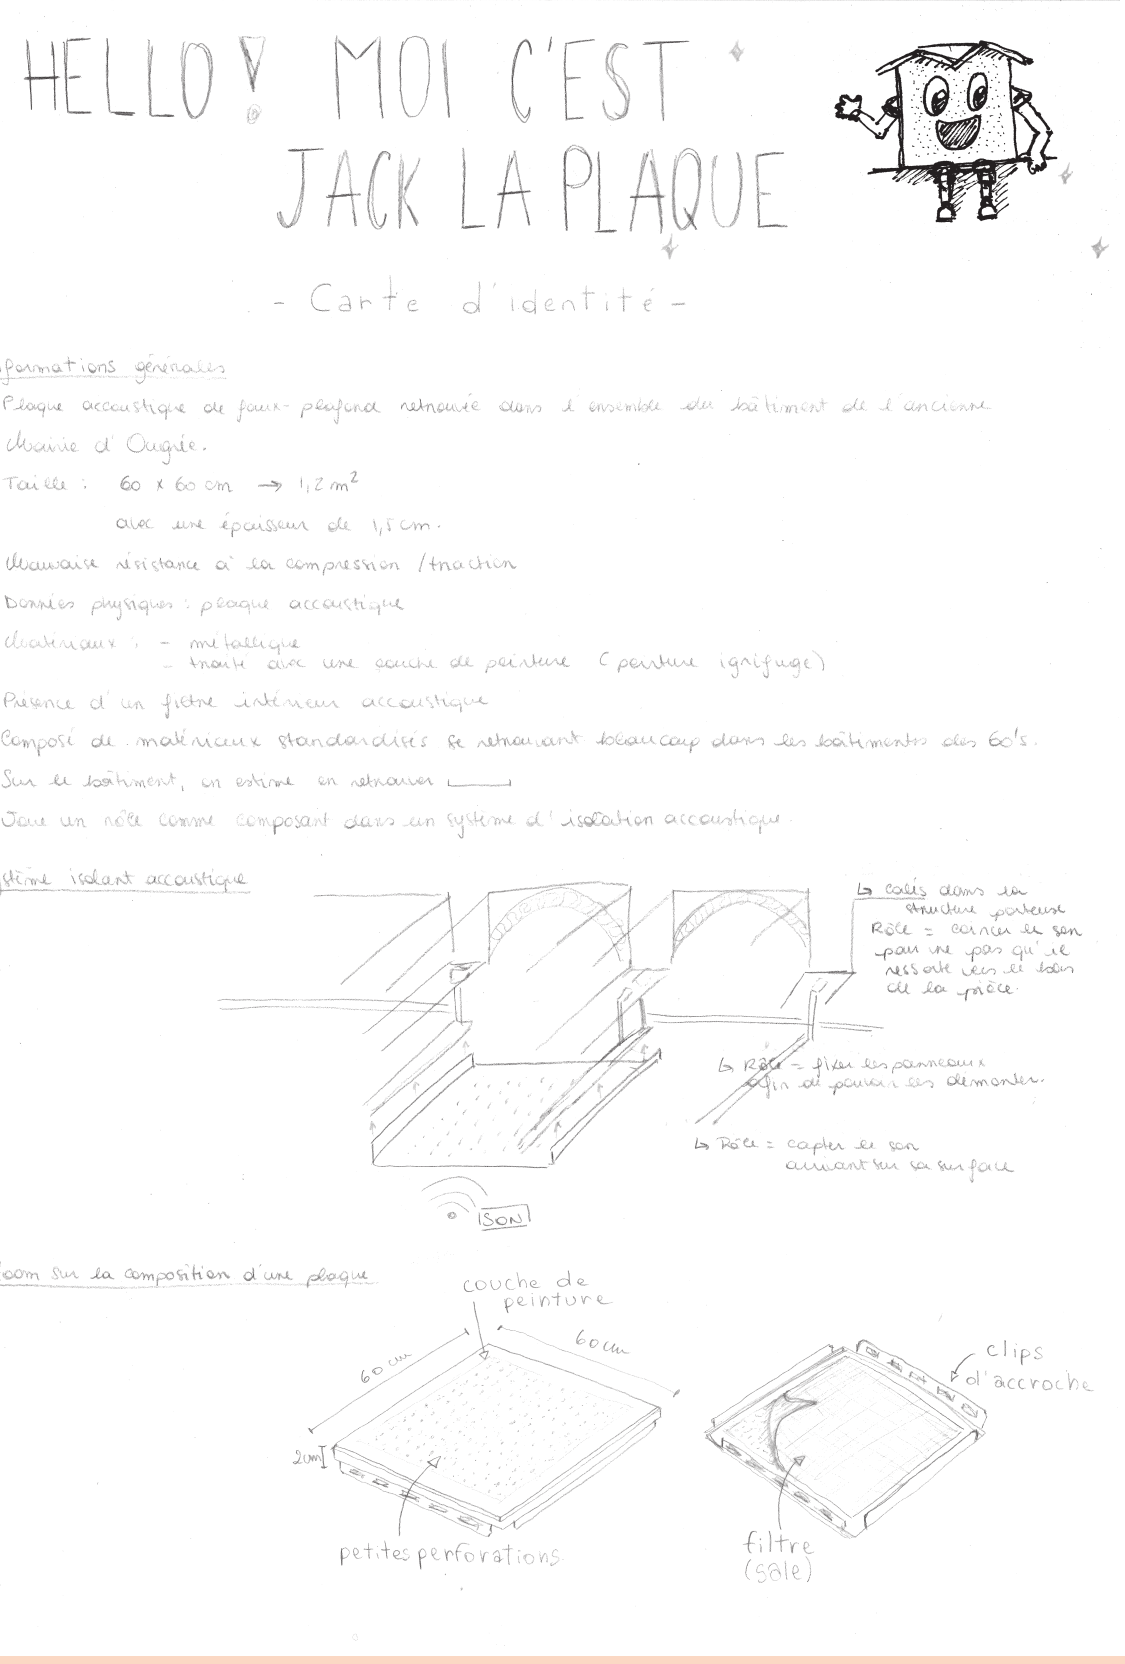 HELLO! MOI C'EST
JACK LA PLAQUE
- Carte d'identité -
formations générales
Plaque accoustique de faux-plafond retrouvée dans l'ensemble du bâtiment de l'ancienne
Mairie d'Ougrée.
Taille : 60 x 60 cm → 1,2 m²
avec une épaisseur de 1,5 cm.
Mauvaise résistance à la compression / traction
Données physiques : plaque accoustique
Matériaux : - métallique
- traité avec une couche de peinture (peinture ignifuge)
Présence d'un filtre intérieur accoustique
Composé de matériaux standardisés se retrouvant beaucoup dans les bâtiments des 60's.
Sur le bâtiment, on estime en retrouver
Joue un rôle comme composant dans un système d'isolation accoustique.
stème isolant accoustique
↳ calés dans la
structure porteuse
Rôle = coincer le son
pour ne pas qu'il
ressorte vers le bas
de la pièce.
↳ Rôle = fixer les panneaux
afin de pouvoir les démonter.
↳ Rôle = capter le son
arrivant sur sa surface
SON
oom sur la composition d'une plaque
couche de
peinture
60 cm
60 cm
clips
d'accroche
2cm
petites perforations
filtre
(sale)